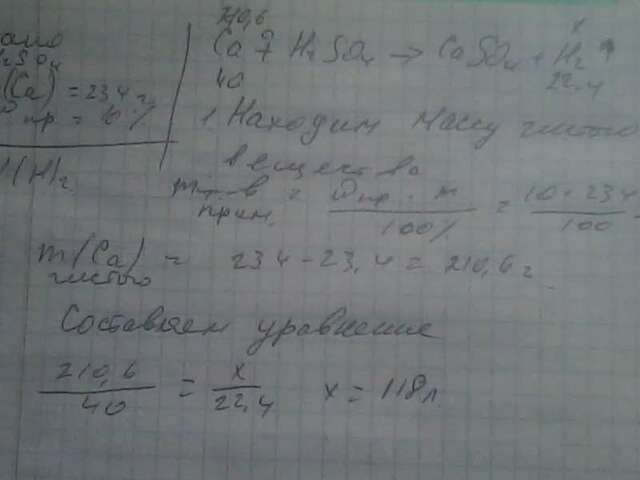 H2SO4
(Ca) = 234 г
пр = 10%
V(H)2
210,6 x
Ca + H2SO4 → CaSO4 + H2↑
40 22,4
1 Находим массу чистого
вещества
m прим. = Wпр · m / 100% = 10 · 234 / 100
m(Ca) чистого = 234 - 23,4 = 210,6 г
Составляем уравнение
210,6 / 40 = x / 22,4 x = 118 л